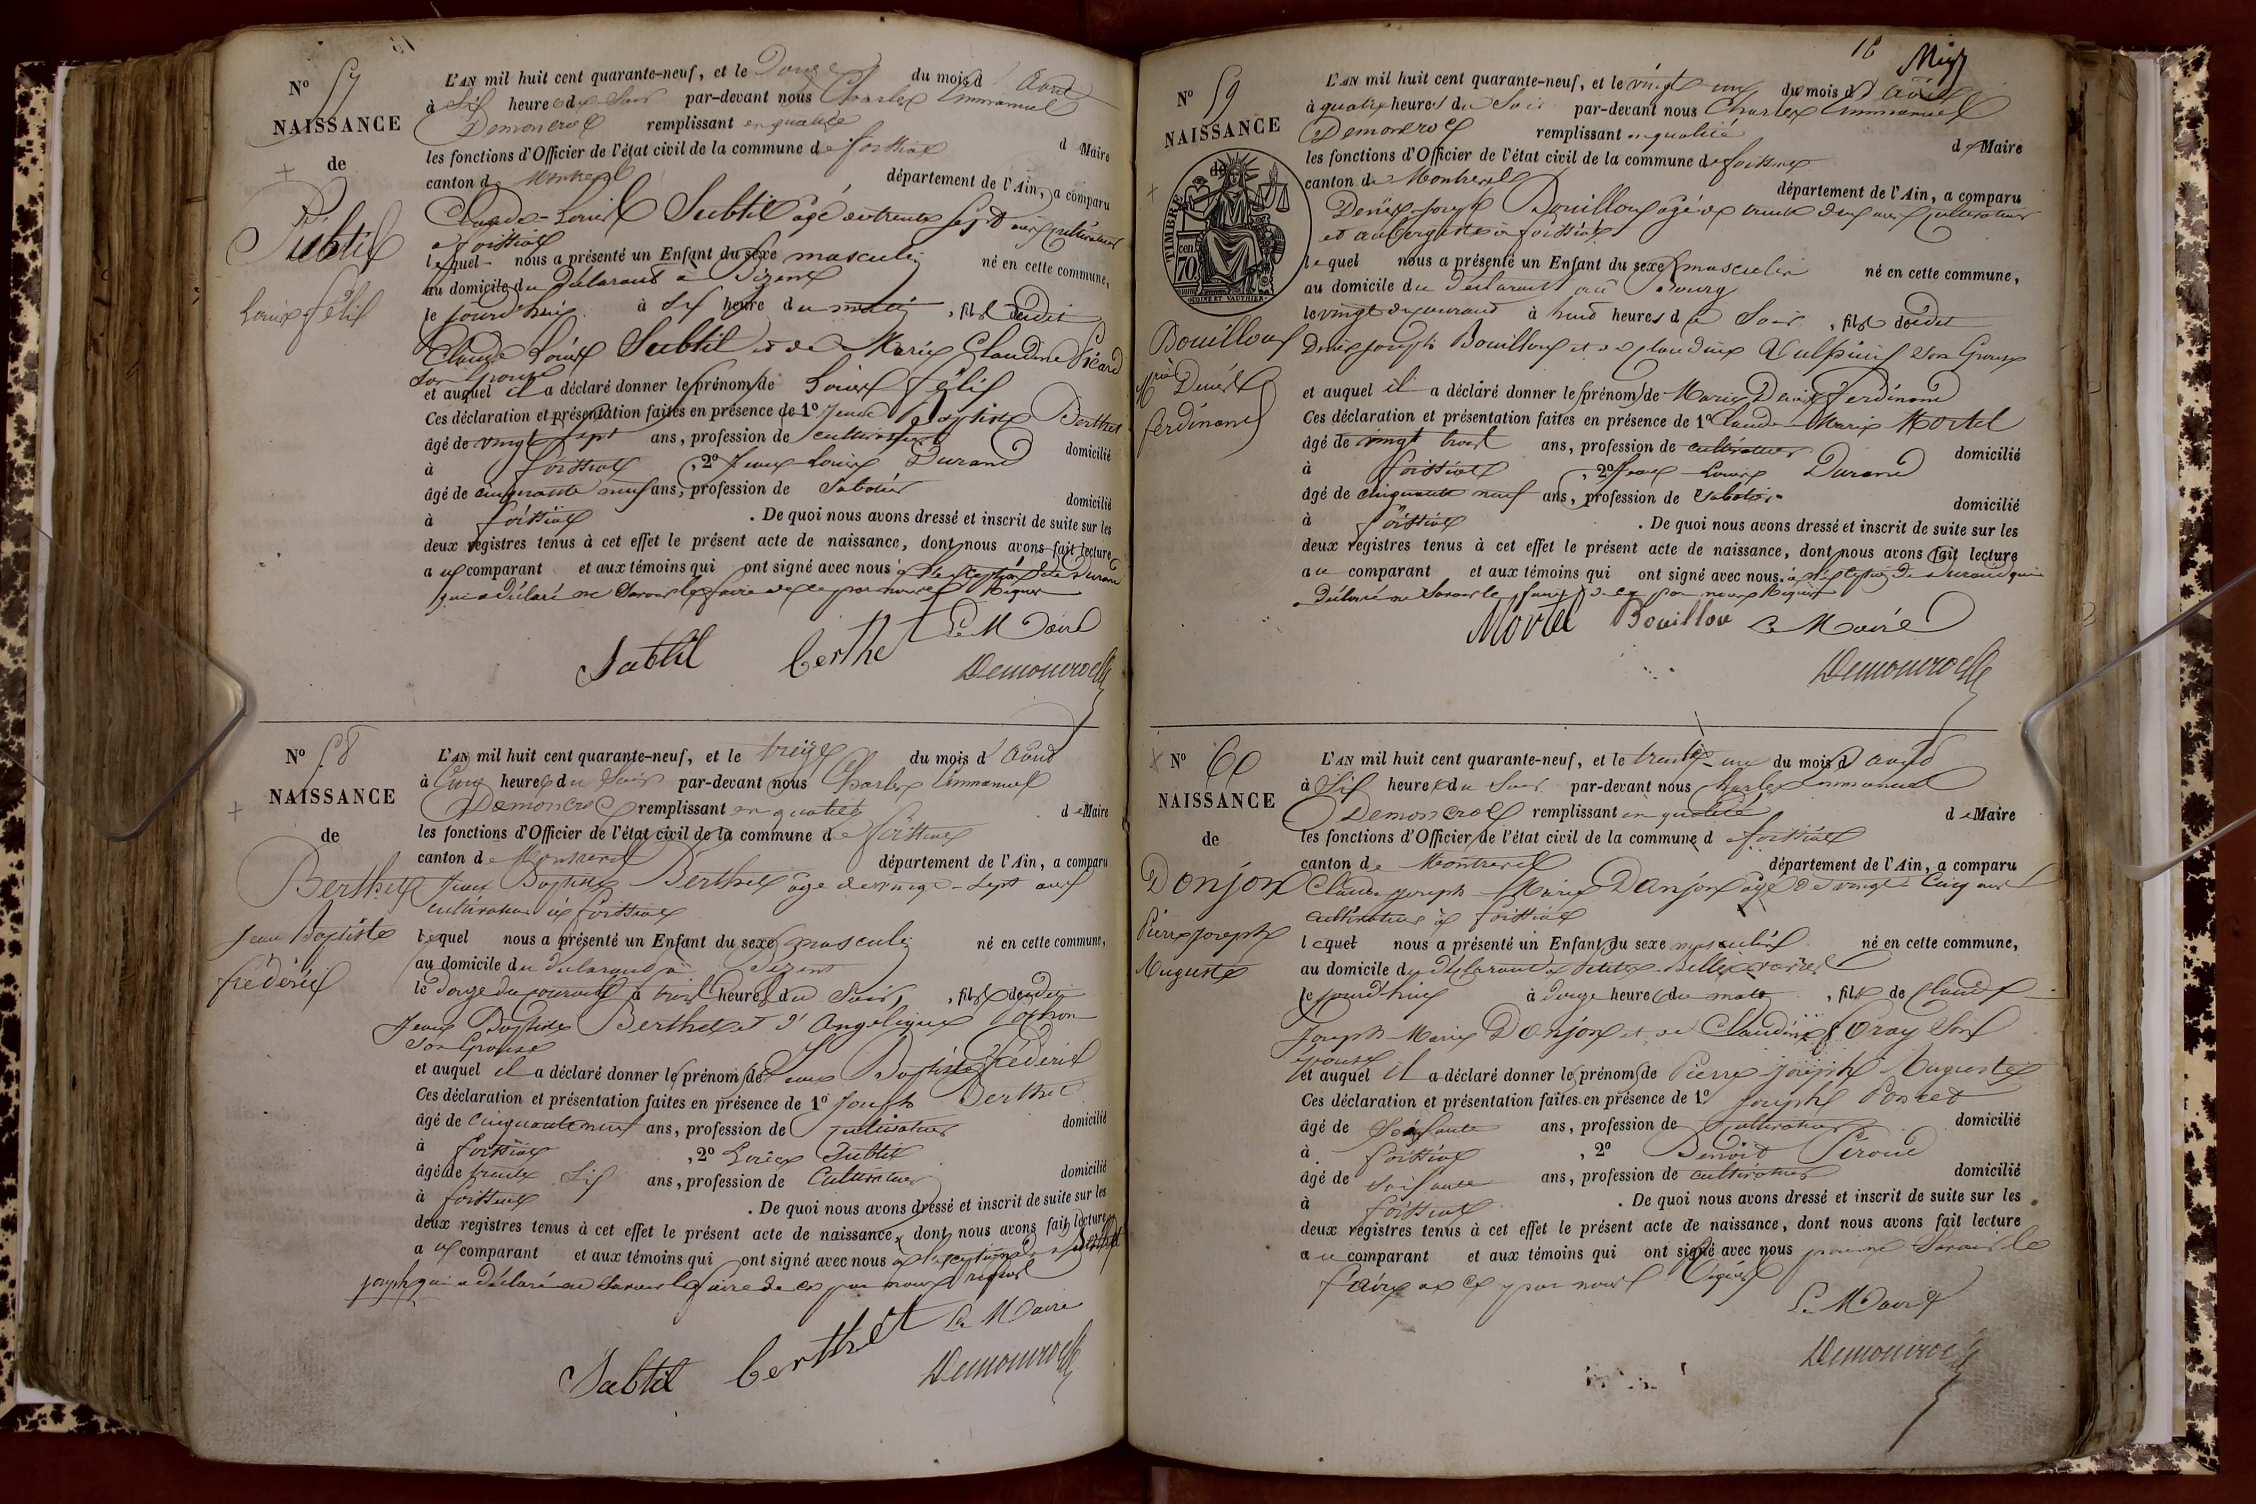 N° 57
NAISSANCE
de
Subtil
Louis félix
L'AN mil huit cent quarante-neuf, et le Douze du mois d'Aout
à Six heures du Soir par-devant nous Charles Emmanuel
Demoncroc remplissant en qualité de Maire
les fonctions d'Officier de l'état civil de la commune de foissiat
canton de Montrevel département de l'Ain, a comparu
Claude-Louis Subtil agé de trente sept ans cultivateur
à foissiat
lequel nous a présenté un Enfant du sexe masculin né en cette commune,
au domicile du déclarant à
le jourd'hui à Six heure du matin, fils dudit
Claude Louis Subtil et de Marie Claudine Picard
son épouse
et auquel il a déclaré donner les prénoms de Louis félix
Ces déclaration et présentation faites en présence de 1° Jean Baptiste Berthet
âgé de vingt sept ans, profession de cultivateur domicilié
à foissiat, 2° Jean Louis Durand
âgé de cinquante neuf ans, profession de Sabotier domicilié
à foissiat. De quoi nous avons dressé et inscrit de suite sur les
deux registres tenus à cet effet le présent acte de naissance, dont nous avons fait lecture
aux comparant et aux témoins qui ont signé avec nous à l'exception de Durand
qui a déclaré ne Savoir le faire de ce par nous Requis
Le Maire
Subtil berthet Demoncroc
N° 58
NAISSANCE
de
Berthet
Jean Baptiste
frédéric
L'AN mil huit cent quarante-neuf, et le treize du mois d'Aout
à Cinq heures du Soir par-devant nous Charles Emmanuel
Demoncroc remplissant en qualité de Maire
les fonctions d'Officier de l'état civil de la commune de foissiat
canton de Montrevel département de l'Ain, a comparu
Jean Baptiste Berthet âgé de vingt-sept ans
cultivateur à foissiat
lequel nous a présenté un Enfant du sexe masculin né en cette commune,
au domicile du déclarant à
le douze du courant à trois heures du Soir, fils dudit
Jean Baptiste Berthet et d'Angélique
son épouse
et auquel il a déclaré donner les prénoms de Jean Baptiste frédéric
Ces déclaration et présentation faites en présence de 1° Joseph Berthet
âgé de cinquante neuf ans, profession de cultivateur domicilié
à foissiat, 2° Louis Subtil
âgé de trente Six ans, profession de Cultivateur domicilié
à foissiat. De quoi nous avons dressé et inscrit de suite sur les
deux registres tenus à cet effet le présent acte de naissance, dont nous avons fait lecture
aux comparant et aux témoins qui ont signé avec nous à l'exception de Berthet
joseph qui a déclaré ne Savoir le faire de ce par nous requis
Le Maire
Subtil berthet Demoncroc
18
N° 59
NAISSANCE
de
TIMBRE
70 cen
Bouilloux
Mie Denis
ferdinand
L'AN mil huit cent quarante-neuf, et le vingt un du mois d'Aout
à quatre heures du Soir par-devant nous Charles Emmanuel
Demoncroc remplissant en qualité de Maire
les fonctions d'Officier de l'état civil de la commune de foissiat
canton de Montrevel département de l'Ain, a comparu
Denis-Joseph Bouilloux âgé de trente deux ans cultivateur
et aubergiste à foissiat
lequel nous a présenté un Enfant du sexe masculin né en cette commune,
au domicile du déclarant au Bourg
le vingt du courant à huit heures du Soir, fils dudit
Denis joseph Bouilloux et de claudine Vulpin son épouse
et auquel il a déclaré donner les prénoms de Marie Denis ferdinand
Ces déclaration et présentation faites en présence de 1° Claude Marie Mortel
âgé de vingt trois ans, profession de cultivateur domicilié
à foissiat, 2° Jean Louis Durand
âgé de cinquante neuf ans, profession de sabotier domicilié
à foissiat. De quoi nous avons dressé et inscrit de suite sur les
deux registres tenus à cet effet le présent acte de naissance, dont nous avons fait lecture
au comparant et aux témoins qui ont signé avec nous à l'exception de Durand qui
a déclaré ne Savoir le faire de ce par nous Requis
Mortel Bouillou Le Maire
Demoncroc
N° 60
NAISSANCE
de
Donjon
Pierre Joseph
Auguste
L'AN mil huit cent quarante-neuf, et le trente-un du mois d'Aout
à Six heures du Soir par-devant nous Charles Emmanuel
Demoncroc remplissant en qualité de Maire
les fonctions d'Officier de l'état civil de la commune de foissiat
canton de Montrevel département de l'Ain, a comparu
Claude joseph Marie Donjon âgé de vingt-Cinq ans
cultivateur à foissiat
lequel nous a présenté un Enfant du sexe masculin né en cette commune,
au domicile du déclarant
le jourd'hui à douze heures du matin, fils de Claude
Joseph Marie Donjon et de Claudine foray Son
épouse
et auquel il a déclaré donner les prénoms de Pierre joseph Auguste
Ces déclaration et présentation faites en présence de 1° joseph Poncet
âgé de Soixante ans, profession de cultivateur domicilié
à foissiat, 2° Benoit Piroud
âgé de Soixante ans, profession de cultivateur domicilié
à foissiat. De quoi nous avons dressé et inscrit de suite sur les
deux registres tenus à cet effet le présent acte de naissance, dont nous avons fait lecture
au comparant et aux témoins qui ont signé avec nous pour ne Savoir le
faire de ce par nous Requis
Le Maire
Demoncroc